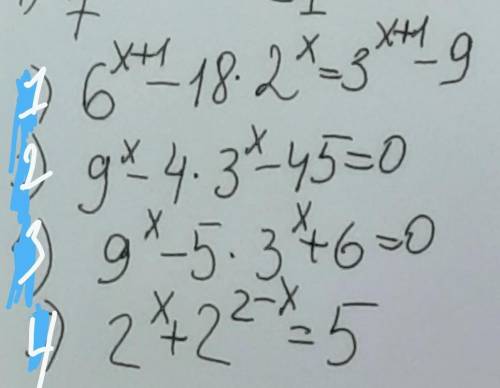 1) 6^{x+1} - 18 · 2^x = 3^{x+1} - 9
2) 9^x - 4 · 3^x - 45 = 0
3) 9^x - 5 · 3^x + 6 = 0
4) 2^x + 2^{2-x} = 5